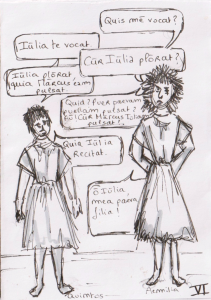 Quis mē vocat?
Iūlia te vocat
Cūr Iūlia plōrat?
Iūlia plōrat,
quia Marcus eam
pulsat.
Quid? Puer parvam
puellam pulsat?
Ō! Cūr Marcus Iuliam
pulsat?
Quia Iūlia
Recitat.
Ō Iūlia,
mea parva
filia!
Quintus
Aemilia
VI